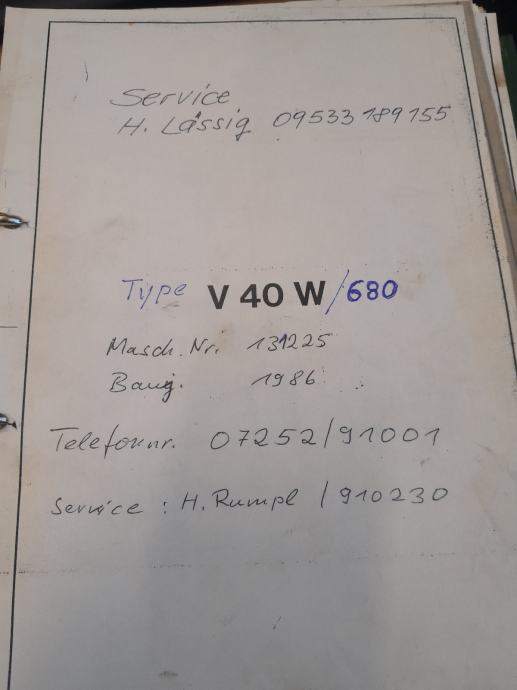 Service
H. Lässig 09533 189155
Type V 40 W/680
Masch. Nr. 131225
Bauj. 1986
Telefonnr. 07252/91001
Service: H. Rumpl /910230